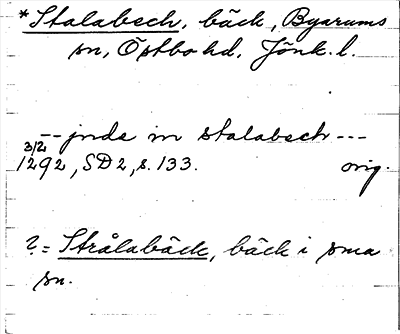 *Stalabech, bäck, Byarums
sn, Östbo hd, Jönk. l.
-- jnde in stalabech ---
3/2
1292, SD 2, s. 133. orig.
? = Strålabäck, bäck i sma
sn.